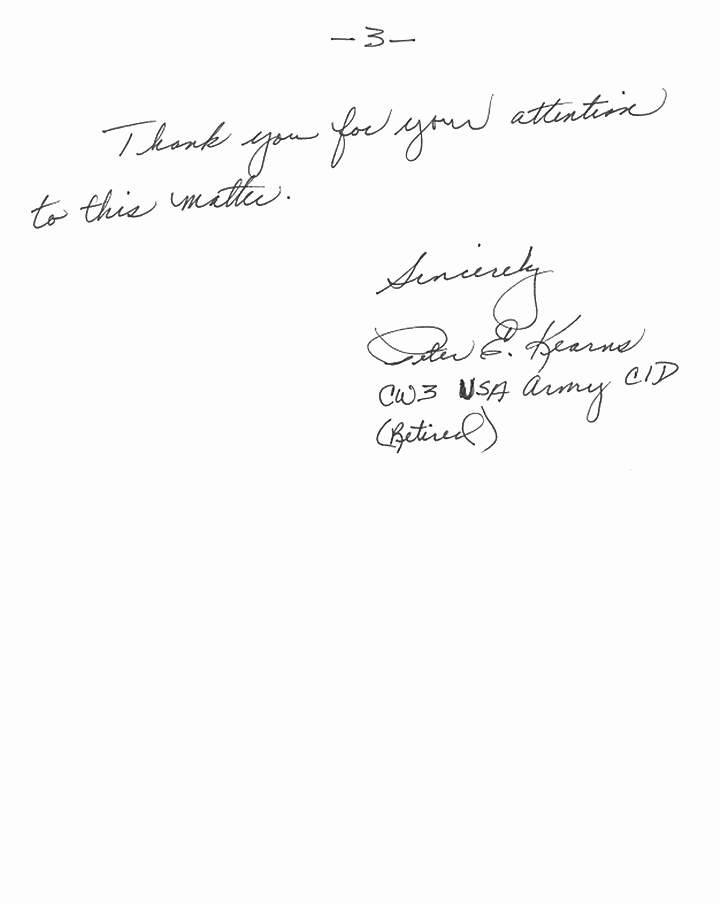 -3-
Thank you for your attention
to this matter.
Sincerely
Peter E. Kearns
CW3 USA Army CID
(Retired)